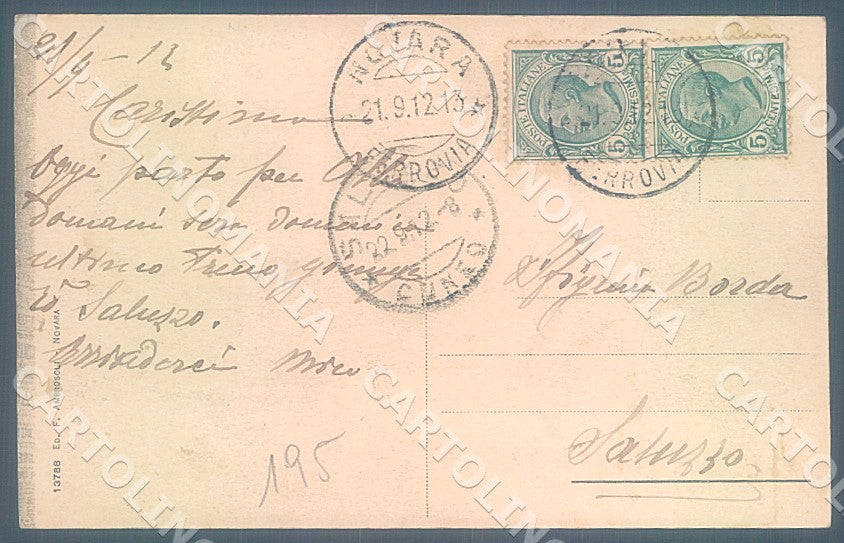 21/9-12
Carissima
Oggi parto per
domani sera domani
ultimo treno giungo
a Saluzzo.
Arrivederci
NOVARA
21.9.12.13
FERROVIA
SALUZZO
22.9.12.-8
CUNEO
POSTE ITALIANE
CENTESIMI
5
5
POSTE ITALIANE
CENTESIMI
5
5
FERROVIA
Borda
Saluzzo
195
13788 ED. F. AMBROSOLI, NOVARA
CARTOLINOMANIA
CARTOLINOMANIA
CARTOLINOMANIA
CARTOLINOMANIA
CARTOLINOMANIA
CARTOLINOMANIA